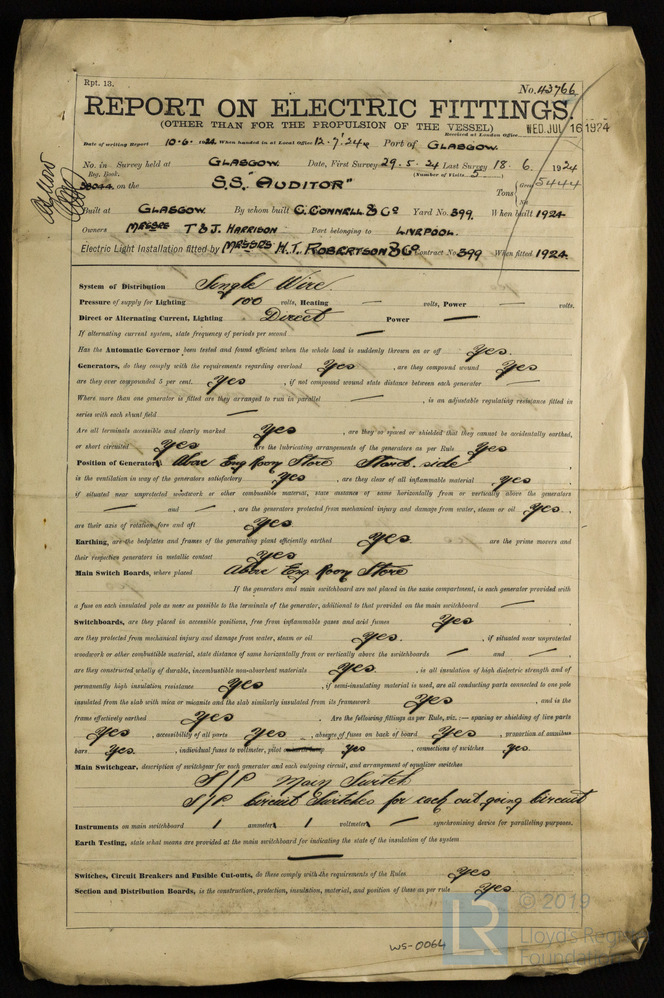 Rpt. 13.
No. 43766
REPORT ON ELECTRIC FITTINGS.
(OTHER THAN FOR THE PROPULSION OF THE VESSEL)
Received at London Office WED. JUL 16 1924
Date of writing Report 10.6.1924 When handed in at Local Office 12.7.'24 Port of GLASGOW.
No. in Survey held at GLASGOW. Date, First Survey 29.5.24 Last Survey 18.6.1924
Reg. Book. (Number of Visits 5)
38044 on the S.S. "AUDITOR" Tons { Gross 5444
Net
Built at GLASGOW. By whom built C. CONNELL & Co Yard No. 399. When built 1924.
Owners MESSRS T & J. HARRISON Port belonging to LIVERPOOL.
Electric Light Installation fitted by MESSRS H. T. ROBERTSON & Co Contract No. 399 When fitted 1924.
System of Distribution Single Wire
Pressure of supply for Lighting 100 volts, Heating — volts, Power — volts.
Direct or Alternating Current, Lighting Direct Power —
If alternating current system, state frequency of periods per second —
Has the Automatic Governor been tested and found efficient when the whole load is suddenly thrown on or off Yes.
Generators, do they comply with the requirements regarding overload Yes, are they compound wound Yes
are they over compounded 5 per cent. Yes, if not compound wound state distance between each generator —
Where more than one generator is fitted are they arranged to run in parallel —, is an adjustable regulating resistance fitted in
series with each shunt field —
Are all terminals accessible and clearly marked Yes, are they so spaced or shielded that they cannot be accidentally earthed,
or short circuited Yes Are the lubricating arrangements of the generators as per Rule Yes
Position of Generators Above Eng Room Store Starb. side,
is the ventilation in way of the generators satisfactory Yes, are they clear of all inflammable material yes,
if situated near unprotected woodwork or other combustible material, state distance of same horizontally from or vertically above the generators
— and —, are the generators protected from mechanical injury and damage from water, steam or oil Yes.,
are their axis of rotation fore and aft Yes
Earthing, are the bedplates and frames of the generating plant efficiently earthed Yes are the prime movers and
their respective generators in metallic contact Yes
Main Switch Boards, where placed Above Eng Room Store
If the generators and main switchboard are not placed in the same compartment, is each generator provided with
a fuse on each insulated pole as near as possible to the terminals of the generator, additional to that provided on the main switchboard —
Switchboards, are they placed in accessible positions, free from inflammable gases and acid fumes Yes,
are they protected from mechanical injury and damage from water, steam or oil Yes., if situated near unprotected
woodwork or other combustible material, state distance of same horizontally from or vertically above the switchboards — and —,
are they constructed wholly of durable, incombustible non-absorbent materials Yes, is all insulation of high dielectric strength and of
permanently high insulation resistance Yes, if semi-insulating material is used, are all conducting parts connected to one pole
insulated from the slab with mica or micanite and the slab similarly insulated from its framework Yes, and is the
frame effectively earthed Yes. Are the following fittings as per Rule, viz.:— spacing or shielding of live parts
Yes, accessibility of all parts Yes, absence of fuses on back of board Yes, proportion of omnibus
bars Yes., individual fuses to voltmeter, pilot yes, connections of switches yes
Main Switchgear, description of switchgear for each generator and each outgoing circuit, and arrangement of equalizer switches
S/P Main Switch
S/P Circuit Switches for each out going Circuit
Instruments on main switchboard 1 ammeter 1 voltmeter — synchronising device for paralleling purposes.
Earth Testing, state what means are provided at the main switchboard for indicating the state of the insulation of the system
—
Switches, Circuit Breakers and Fusible Cut-outs, do these comply with the requirements of the Rules Yes
Section and Distribution Boards, is the construction, protection, insulation, material, and position of these as per rule Yes
WS-0064
LR © 2019
Lloyd's Register
Foundation